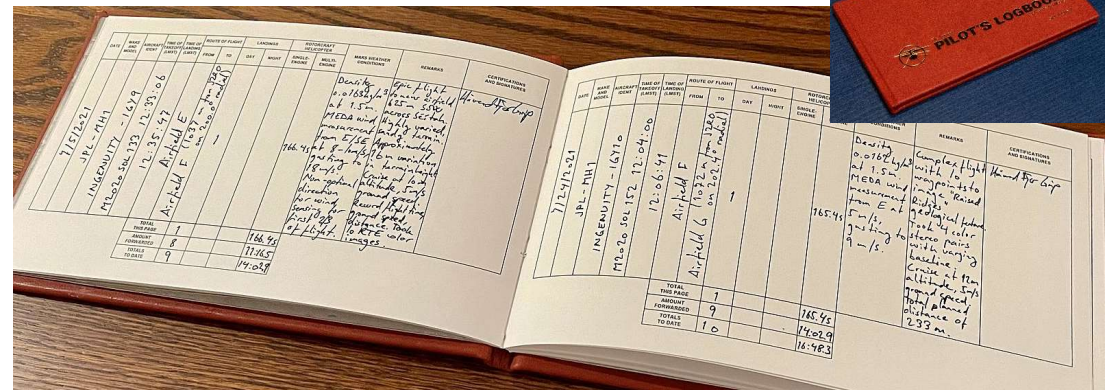 PILOT'S LOGBOOK
DATE
MAKE AND MODEL
AIRCRAFT IDENT
TIME OF TAKEOFF (LMST)
TIME OF LANDING (LMST)
ROUTE OF FLIGHT
FROM
TO
LANDINGS
DAY
NIGHT
ROTORCRAFT HELICOPTER
SINGLE-ENGINE
MULTI-ENGINE
MARS WEATHER CONDITIONS
REMARKS
CERTIFICATIONS AND SIGNATURES
7/5/2021
JPL-MH1
INGENUITY - IGY9
M2020 SOL 133 12:33:06
12:35:47
Airfield E
Airfield F
1
166.4s
Density
at 1.5m.
MEDA wind
measurement
from E/SE
at 8 m/s
gusting to
18 m/s.
direction
for wind
sensing for
first 2/3
of flight.
Epic flight
to new airfield
625m SSW
across Séítah.
Highly varied,
sandy terrain.
Approximately
16m variation
in terrain height
Cruise at 10m
altitude, 5m/s
ground speed.
Record flight time,
ground speed,
distance. Took
10 RTE color
images.
TOTAL THIS PAGE 1 166.4s
AMOUNT FORWARDED 8
TOTALS TO DATE 9 14:02.9
DATE
MAKE AND MODEL
AIRCRAFT IDENT
TIME OF TAKEOFF (LMST)
TIME OF LANDING (LMST)
ROUTE OF FLIGHT
FROM
TO
LANDINGS
DAY
NIGHT
SINGLE-ENGINE
CONDITIONS
REMARKS
CERTIFICATIONS AND SIGNATURES
7/24/2021
JPL-MH1
INGENUITY - IGY10
M2020 SOL 152 12:04:00
12:06:41
Airfield F
Airfield G
1
165.4s
Density
at 1.5m.
MEDA wind
measurement
from E at
5 m/s,
gusting to
9 m/s.
Complex flight
with 10
waypoints to
image "Raised
Ridges"
geological feature.
Took 4 color
stereo pairs
with varying
baseline.
Cruise at 12m
altitude, 5m/s
ground speed,
total planned
distance of
233 m.
TOTAL THIS PAGE 1 165.4s
AMOUNT FORWARDED 9 14:02.9
TOTALS TO DATE 10 16:48.3